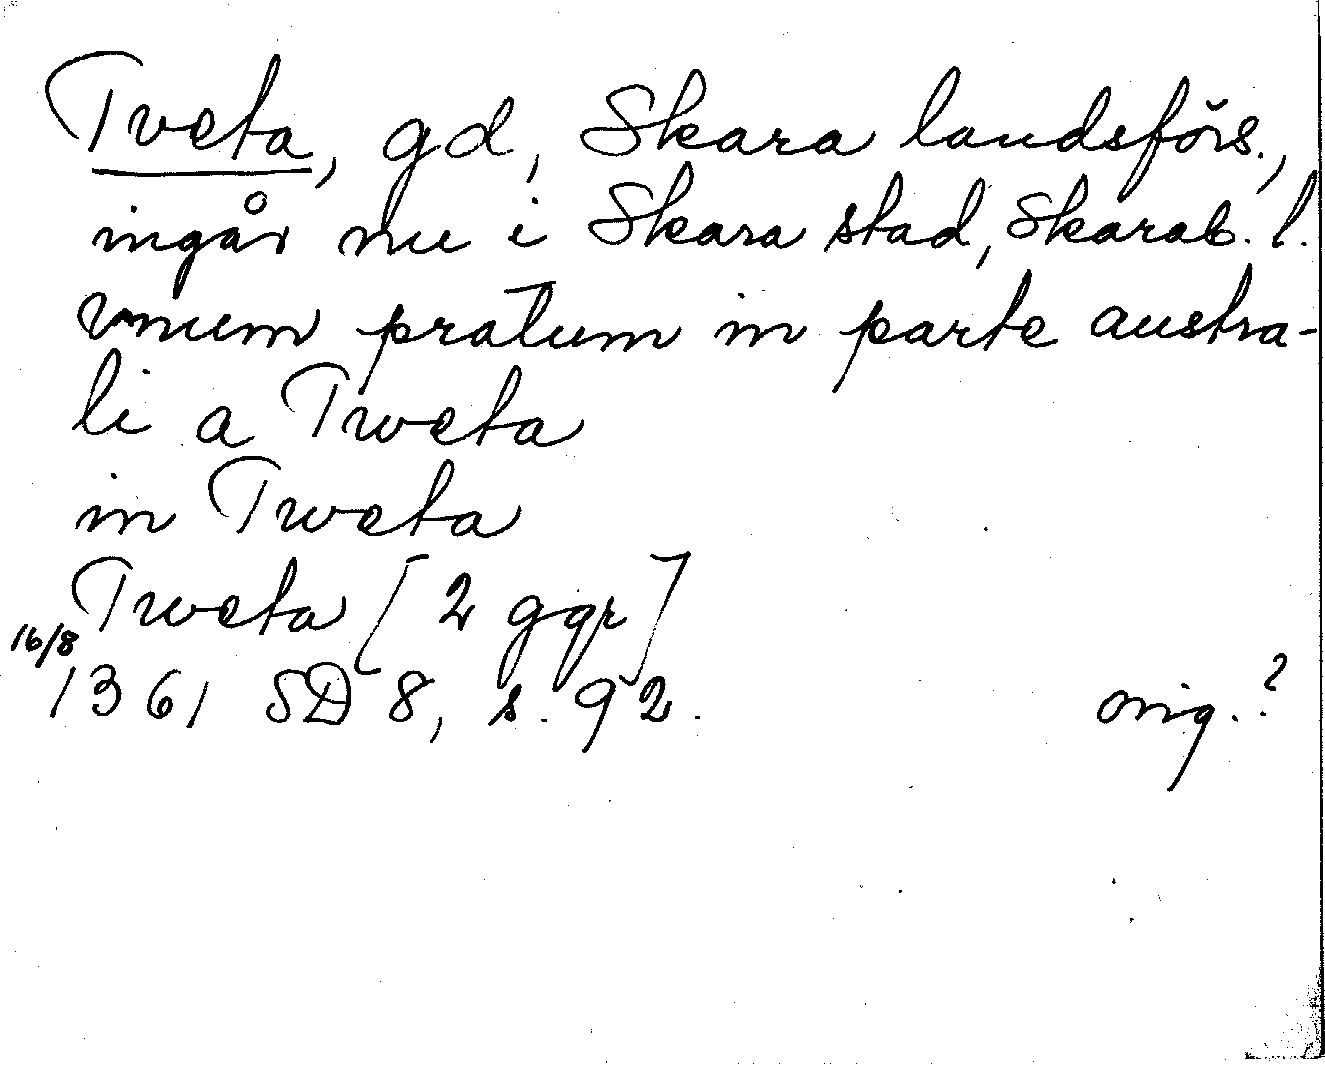 Tveta, gd, Skara landsförs.,
ingår nu i Skara stad, Skarab. l.
vnum pratum in parte austra-
li a Tweta
in Tweta
Tweta [2 ggr]
16/8
1361 SD 8, s. 92. orig.?